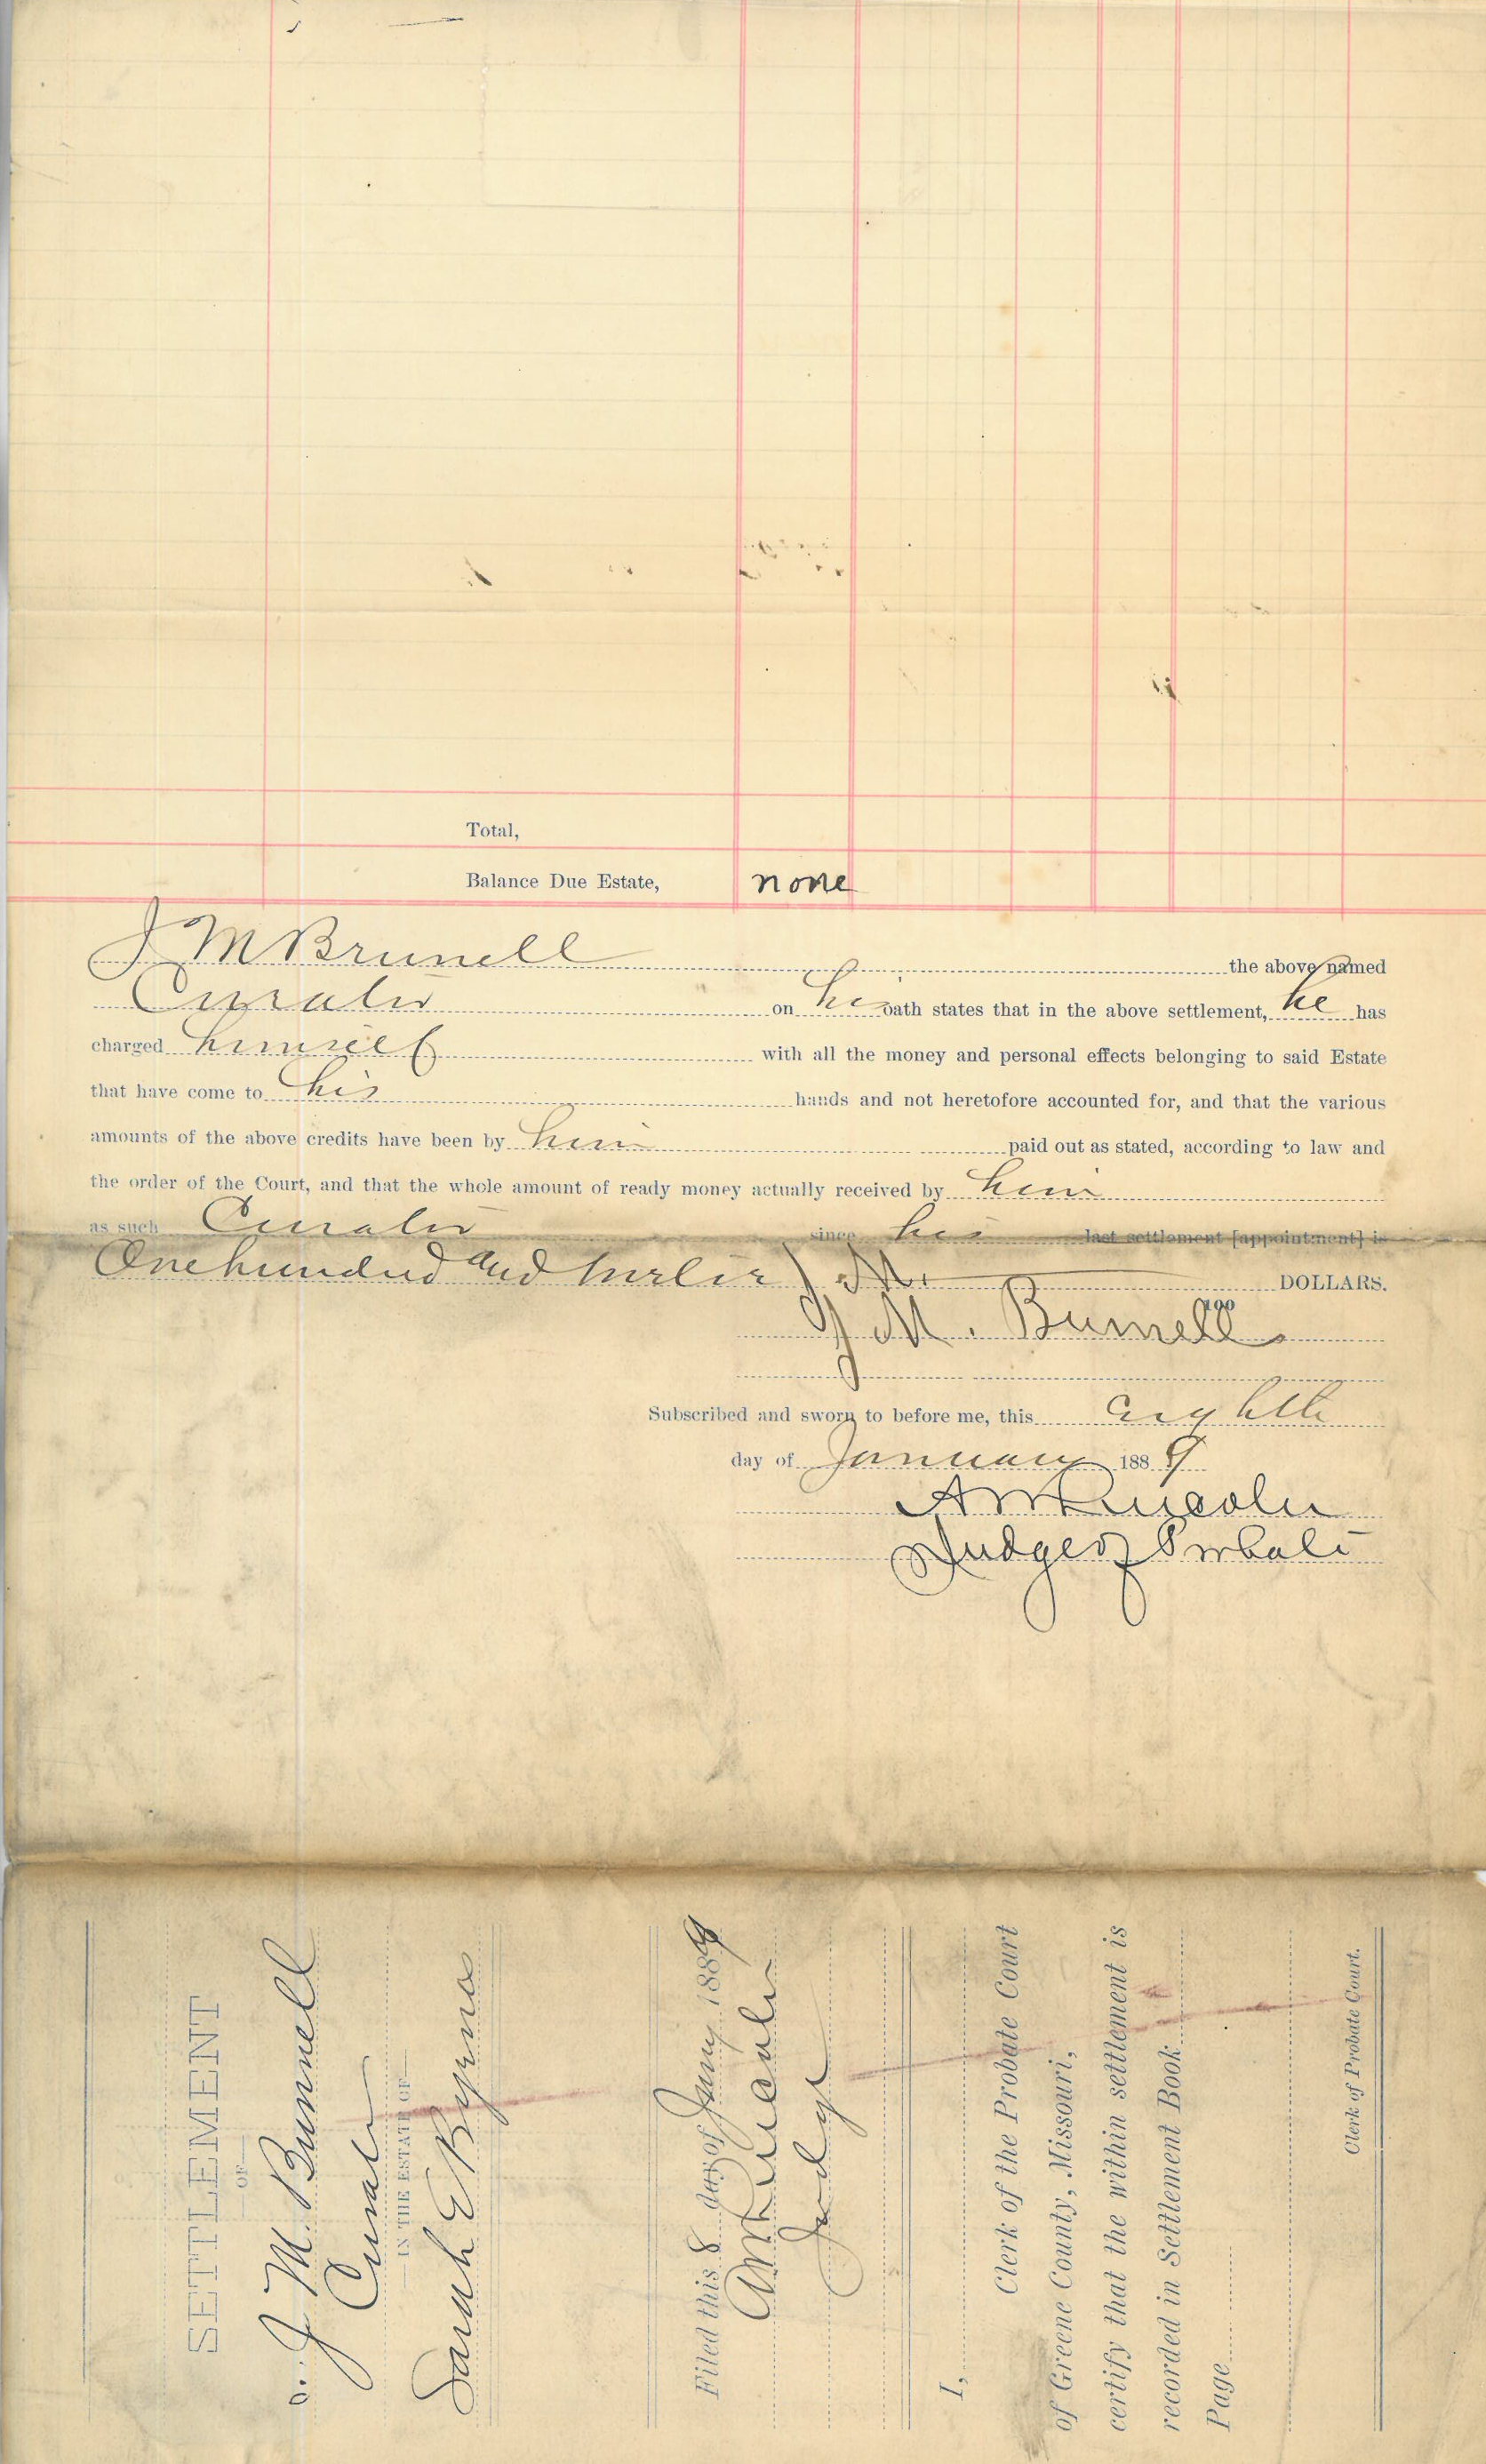 Total,
Balance Due Estate, none
J M Brunell the above named
Curator on his oath states that in the above settlement, he has
charged himself with all the money and personal effects belonging to said Estate
that have come to his hands and not heretofore accounted for, and that the various
amounts of the above credits have been by him paid out as stated, according to law and
the order of the Court, and that the whole amount of ready money actually received by him
as such Curator since his last settlement [appointment] is
One hundred and twelve DOLLARS.
100
J M. Bunnell
Subscribed and sworn to before me, this eighth
day of January 1889
A W Lincoln
Judge of Probate
SETTLEMENT
OF
J M. Bunnell
Curator
IN THE ESTATE OF
Sarah E Byrns
Filed this 8 day of Jany 1889
A W Lincoln
Judge
I,
Clerk of the Probate Court
of Greene County, Missouri,
certify that the within settlement is
recorded in Settlement Book
Page
Clerk of Probate Court.